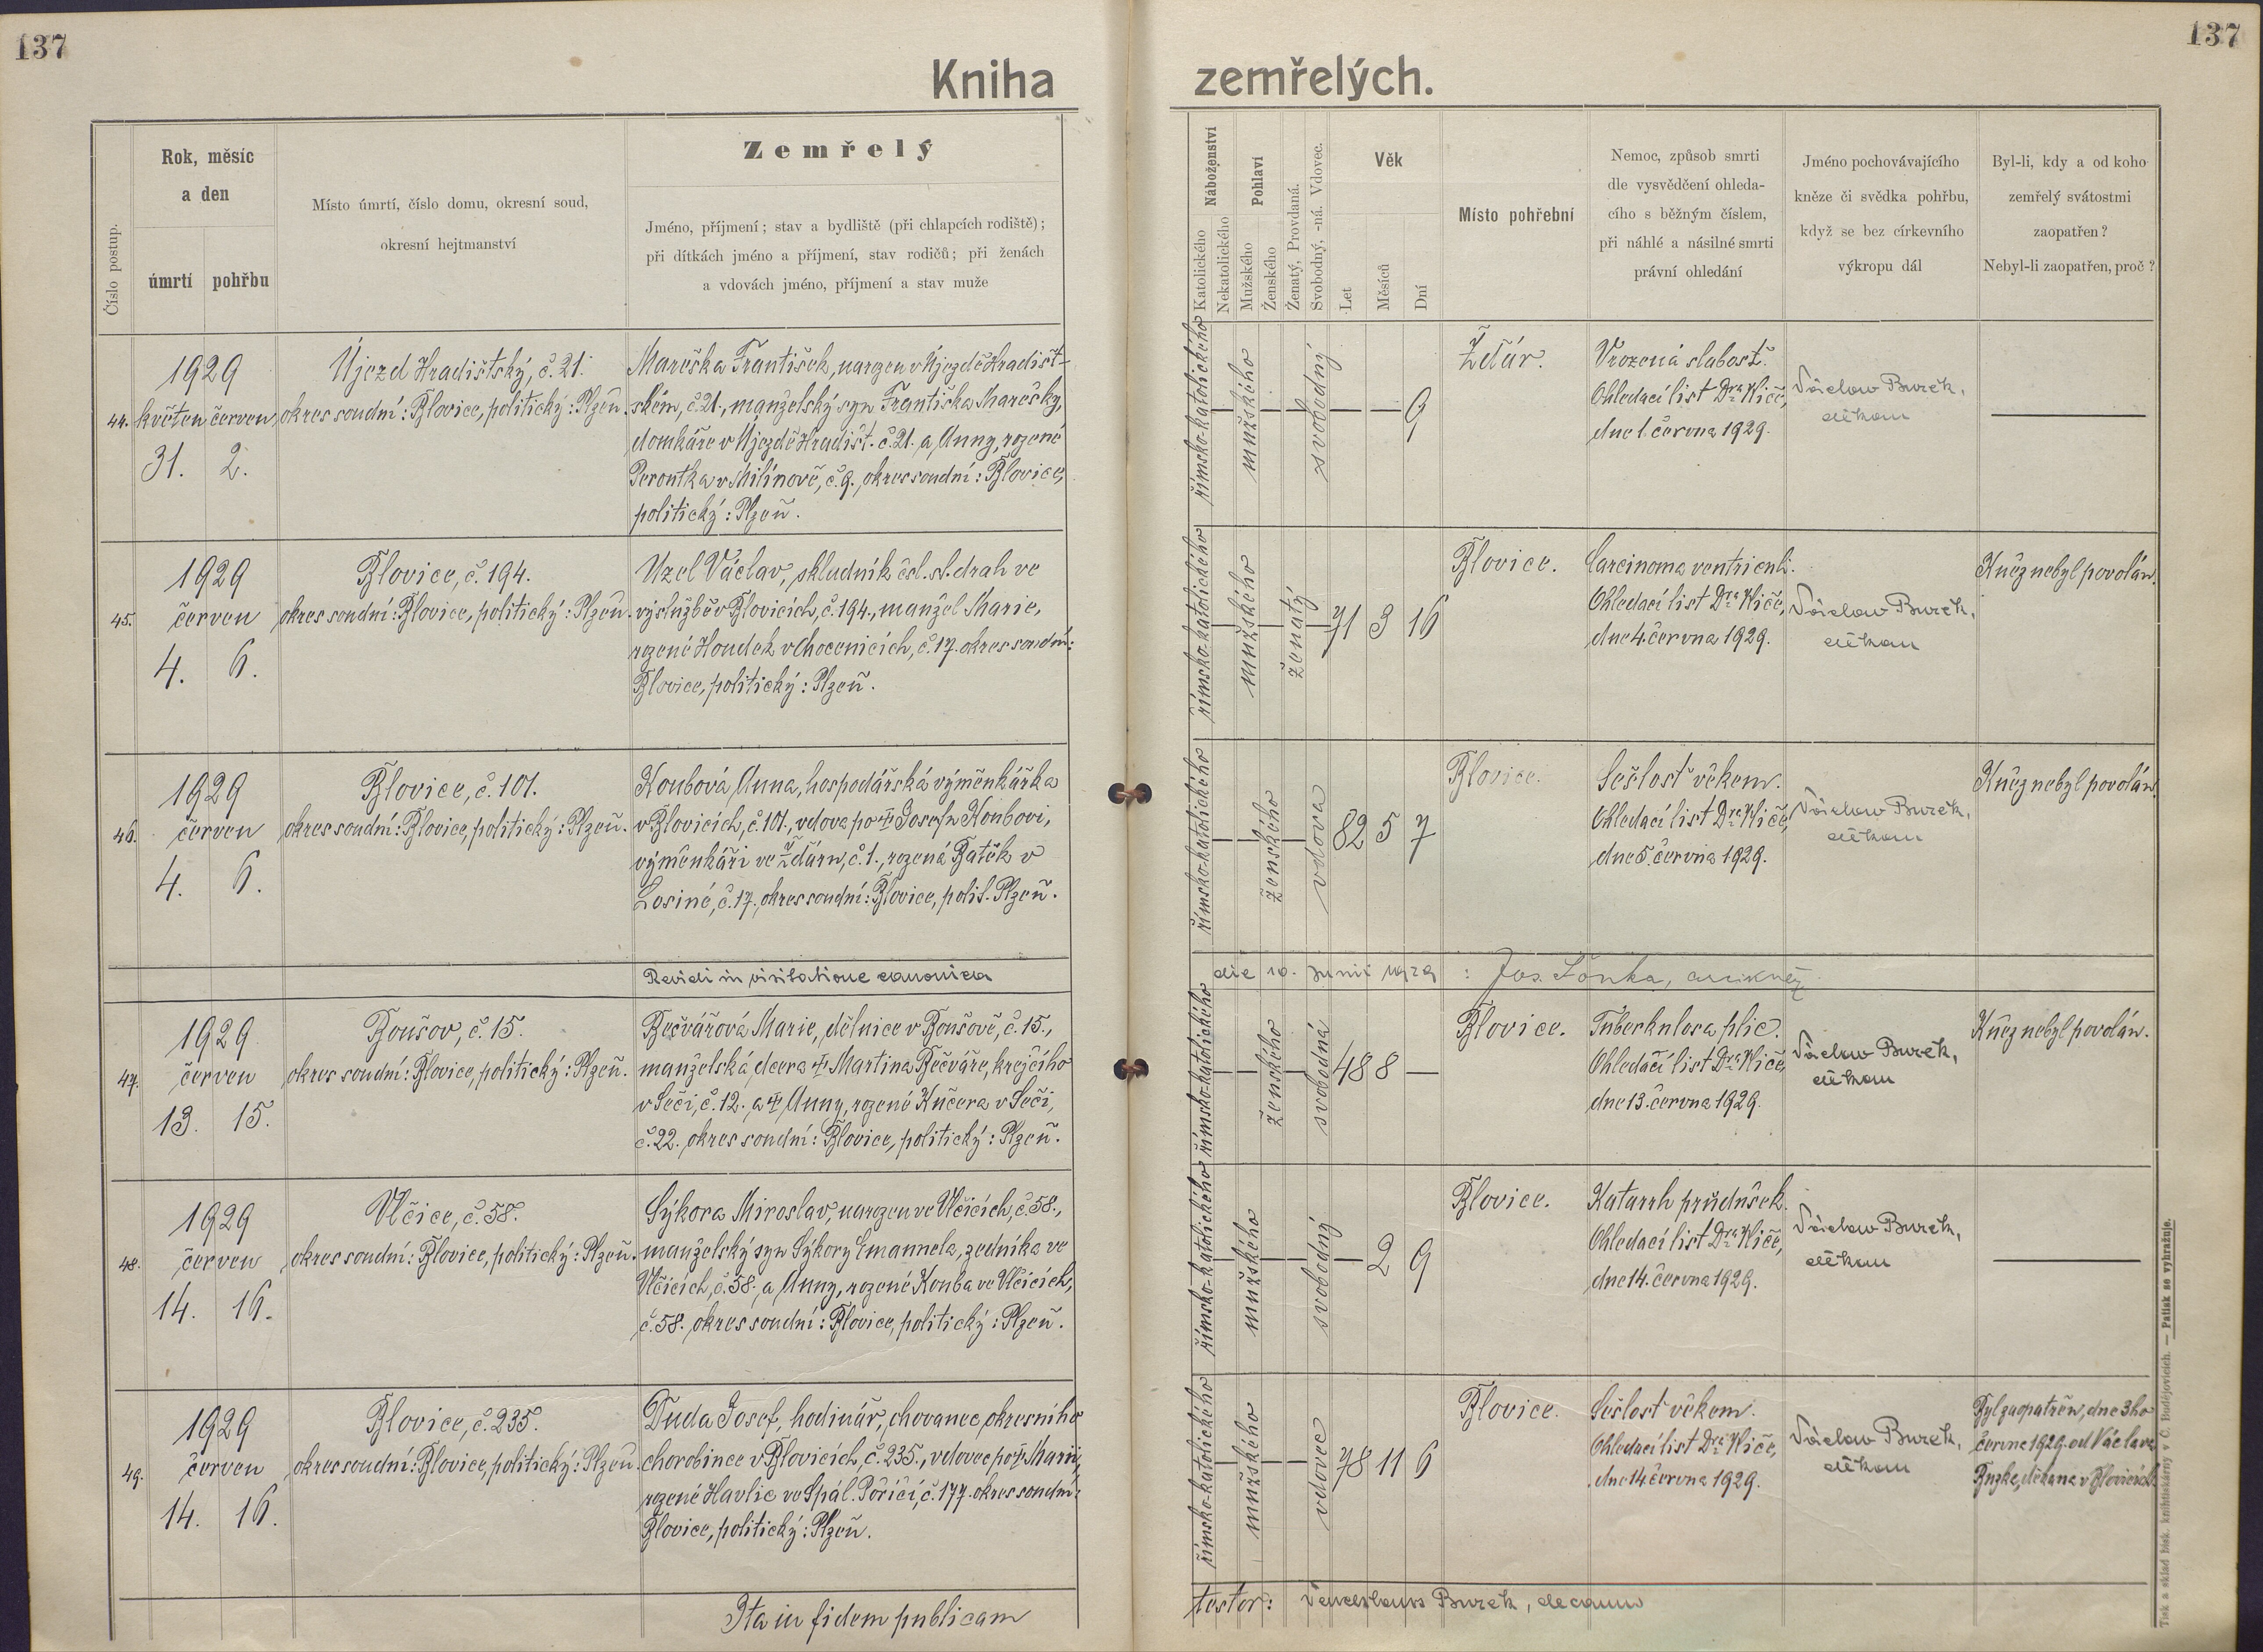 137
137
Kniha zemřelých.
Číslo postup.
Rok, měsíc
a den
úmrtí
pohřbu
Místo úmrtí, číslo domu, okresní soud,
okresní hejtmanství
Zemřelý
Jméno, příjmení; stav a bydliště (při chlapcích rodiště);
při dítkách jméno a příjmení, stav rodičů; při ženách
a vdovách jméno, příjmení a stav muže
Náboženství
Katolického
Nekatolického
Pohlaví
Mužského
Ženského
Ženatý, Provdaná.
Svobodný, -ná. Vdovec.
Věk
Let
Měsíců
Dní
Místo pohřební
Nemoc, způsob smrti
dle vysvědčení ohleda-
cího s běžným číslem,
při náhlé a násilné smrti
právní ohledání
Jméno pochovávajícího
kněze či svědka pohřbu,
když se bez církevního
výkropu dál
Byl-li, kdy a od koho
zemřelý svátostmi
zaopatřen?
Nebyl-li zaopatřen, proč?
44.
1929
květen červen
31. 2.
Újezd Hradištský, č. 21.
okres soudní: Blovice, politický: Plzeň.
Marečka František, narozen v Újezdě Hradišt-
ském, č. 21., manželský syn Františka Marečky,
domkáře v Újezdě Hradišt. č. 21. a Anny, rozené
Peroutka v Milínově, č. 9., okres soudní: Blovice,
politický: Plzeň.
římsko-katolického
mužského
svobodný
— — 9
Ždár.
Vrozená slabost.
Ohledací list Dra Kliče,
dne 1. června 1929.
Václav Burek,
děkan
45.
1929
červen
4. 6.
Blovice, č. 194.
okres soudní: Blovice, politický: Plzeň.
Uzel Václav, skladník čsl. st. drah ve
výslužbě v Blovicích, č. 194., manžel Marie,
rozené Houdek v Chocenicích, č. 17. okres soudní:
Blovice, politický: Plzeň.
římsko-katolického
mužského
ženatý
71 3 16
Blovice.
Carcinoma ventriculi.
Ohledací list Dra Kliče,
dne 4. června 1929.
Václav Burek,
děkan
Kněz nebyl povolán.
46.
1929
červen
4. 6.
Blovice, č. 101.
okres soudní: Blovice, politický: Plzeň.
Koubová Anna, hospodářská výměnkářka
v Blovicích, č. 101., vdova po † Josefu Koubovi,
výměnkáři ve Ždáru, č. 1., rozená Batěk v
Losiné, č. 17., okres soudní: Blovice, polit. Plzeň.
římsko-katolického
ženského
vdova
82 5 7
Blovice.
Sešlost věkem.
Ohledací list Dra Kliče,
dne 5. června 1929.
Václav Burek,
děkan
Kněz nebyl povolán.
Revidi in visitatione canonica die 10. Junii 1929 : Jos. Šonka, arcikněz
47.
1929
červen
13. 15.
Boušov, č. 15.
okres soudní: Blovice, politický: Plzeň.
Bečvářová Marie, dělnice v Boušově, č. 15.,
manželská dcera † Martina Bečváře, krejčího
v Seči, č. 12. a † Anny, rozené Kučera v Seči,
č. 22. okres soudní: Blovice, politický: Plzeň.
římsko-katolického
ženského
svobodná
48 8 —
Blovice.
Tuberkulosa plic.
Ohledací list Dra Kliče,
dne 13. června 1929.
Václav Burek,
děkan
Kněz nebyl povolán.
48.
1929
červen
14. 16.
Vlčice, č. 58.
okres soudní: Blovice, politický: Plzeň.
Sýkora Miroslav, narozen ve Vlčicích, č. 58.,
manželský syn Sýkory Emanuela, zedníka ve
Vlčicích, č. 58., a Anny, rozené Kouba ve Vlčicích,
č. 58. okres soudní: Blovice, politický: Plzeň.
římsko-katolického
mužského
svobodný
— 2 9
Blovice.
Katarrh průdušek.
Ohledací list Dra Kliče,
dne 14. června 1929.
Václav Burek,
děkan
49.
1929
červen
14. 16.
Blovice, č. 235.
okres soudní: Blovice, politický: Plzeň.
Duda Josef, hodinář, chovanec okresního
chorobince v Blovicích, č. 235., vdovec po † Marii,
rozené Havlic ve Spál. Poříčí, č. 177. okres soudní:
Blovice, politický: Plzeň.
římsko-katolického
mužského
vdovec
78 11 6
Blovice.
Sešlost věkem.
Ohledací list Dra Kliče,
dne 14. června 1929.
Václav Burek,
děkan
Byl zaopatřen, dne 3ho
června 1929. od Václava
Burka, děkana v Blovicích.
Ita in fidem publicam testor: Venceslaus Burek, decanus
Tisk a sklad bisk. knihtiskárny v Č. Budějovicích. — Patisk se vyhražuje.